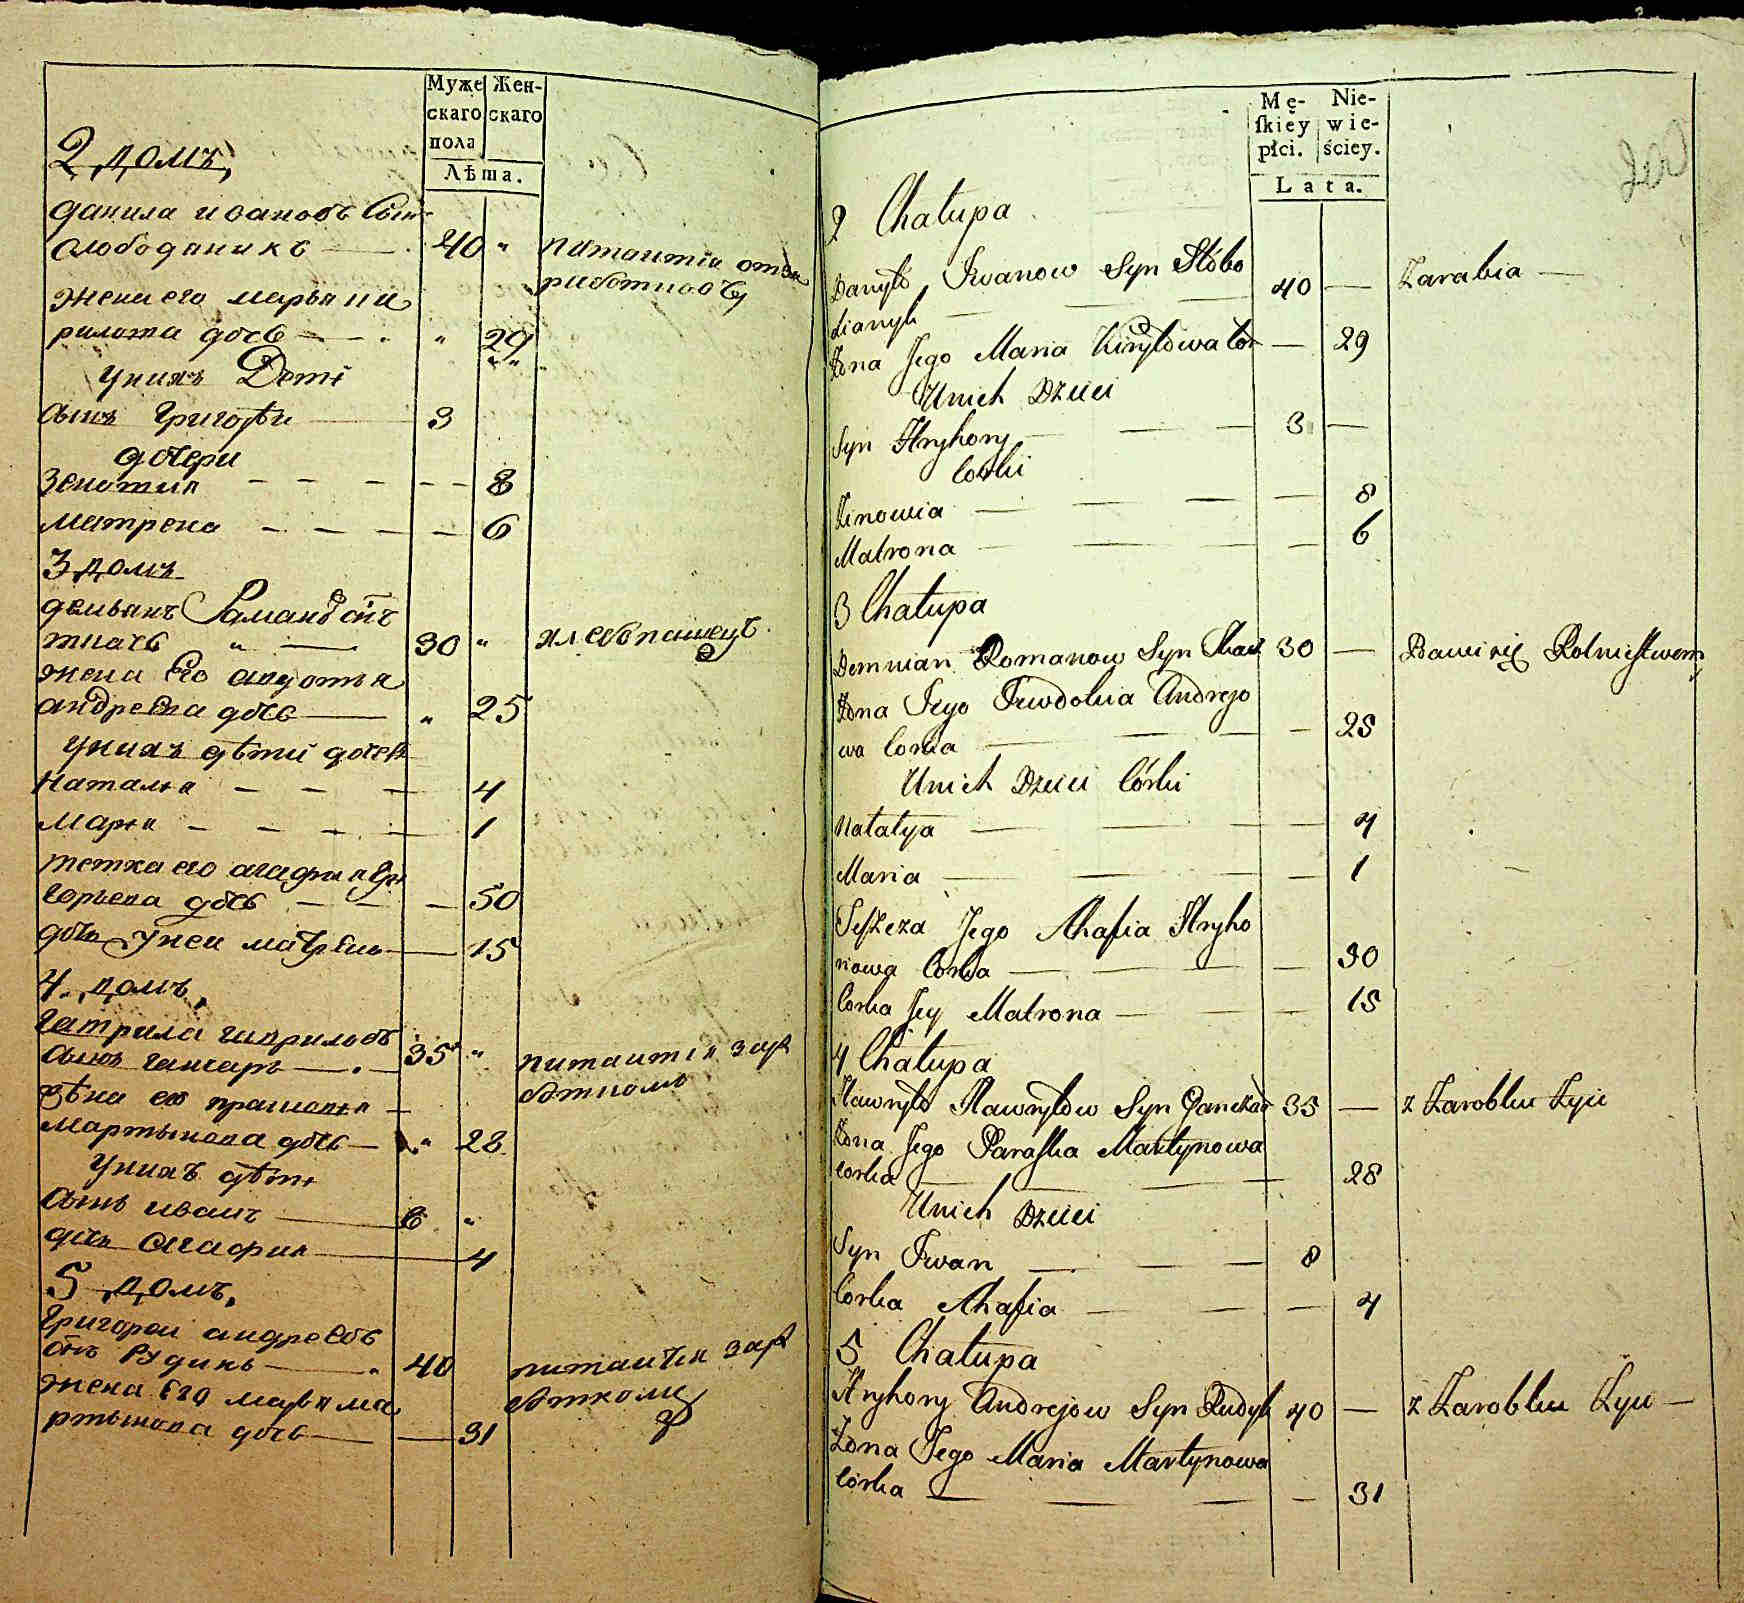 Муже Жен-
скаго скаго
пола
Лѣта.
2 домъ,
данила ивановъ сын
слободяникъ 40 " питаитца отза
работковъ
жена его марья ки
рилова дочь " 29
У них Дети
сынъ Григорѣи 3
дочери
Зеновия 8
матрена 6
3 домъ
демьянъ Романов снъ
ткачь " 30 " хлебопашецъ
жена Его авдотья
андреева дочь " 25
у них дѣти дочери
Наталя 4
Маря 1
тетка его агафия Гри
горьева дочь 50
дочь у неи матрена 15
4 домъ,
гаврила гаврилов
сынъ ганчаръ 35 " питаитца зара
боткомъ
жѣна ево прасковя
мартынова дочь " 28
У них дѣти
сынъ иванъ 8 "
дочь агафия 4
5 домъ,
Григореи андреевъ
снъ Рудикъ 40 питаитца зара
боткомъ
жена Его маря ма
ртынова дочь 31
Mę- Nie-
ſkiéy wie-
płci. ściey.
Lata.
2 Chałupa
Danyło Iwanow Syn Słobo
dianyk 40 — Zarabia —
Żona Jego Maria Kiryłowa Cor — 29
Unich Dzieci
Syn Hryhory 3 —
Corki
Zinowia — 8
Matrona — 6
3 Chałupa
Demnian Romanow Syn Tkacz 30 — Bawi się Rolnictwem
Żona Jego Iewdokia Andrejo
wa Corka — 25
Unich Dzieci Córki
Natalya — 4
Maria — 1
Jego Ahafia Hryho
riowa Corka — 50
Corka Jey Matrona — 15
4 Chałupa
Hawryło Hawryłow Syn Hanczar 35 — z Zarobku Żyie
Żona Jego Paraſka Martynowa
Corka 28
Unich Dzieci
Syn Iwan 8
Corka Ahafia — 4
5 Chałupa
Hryhory Andrejow Syn Rudyk 40 — z Zarobku Żyie —
Żona Jego Maria Martynowa
Córka — 31